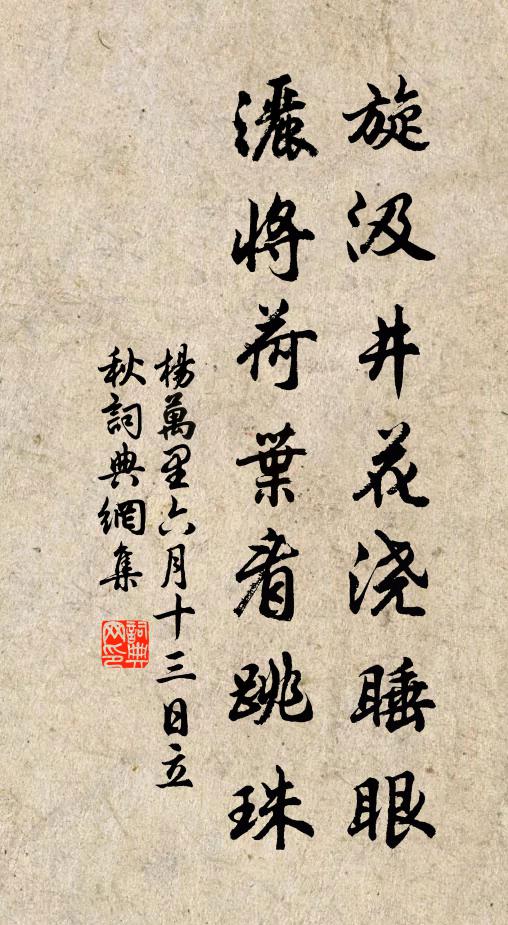 旋汲井花浇睡眼
灑將荷葉看跳珠
楊萬里六月十三日立
秋詞典網集
詞典
网印